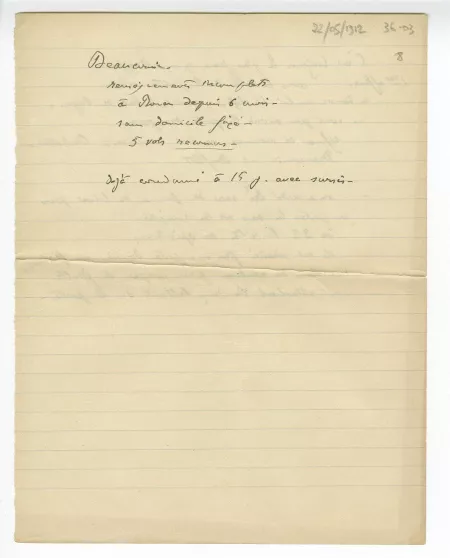 22/05/1912 36-03
8
renseignements incomplets
à Rouen depuis 6 mois -
sans domicile fixe -
5 vols reconnus -
déjà condamné à 15 j. avec sursis -